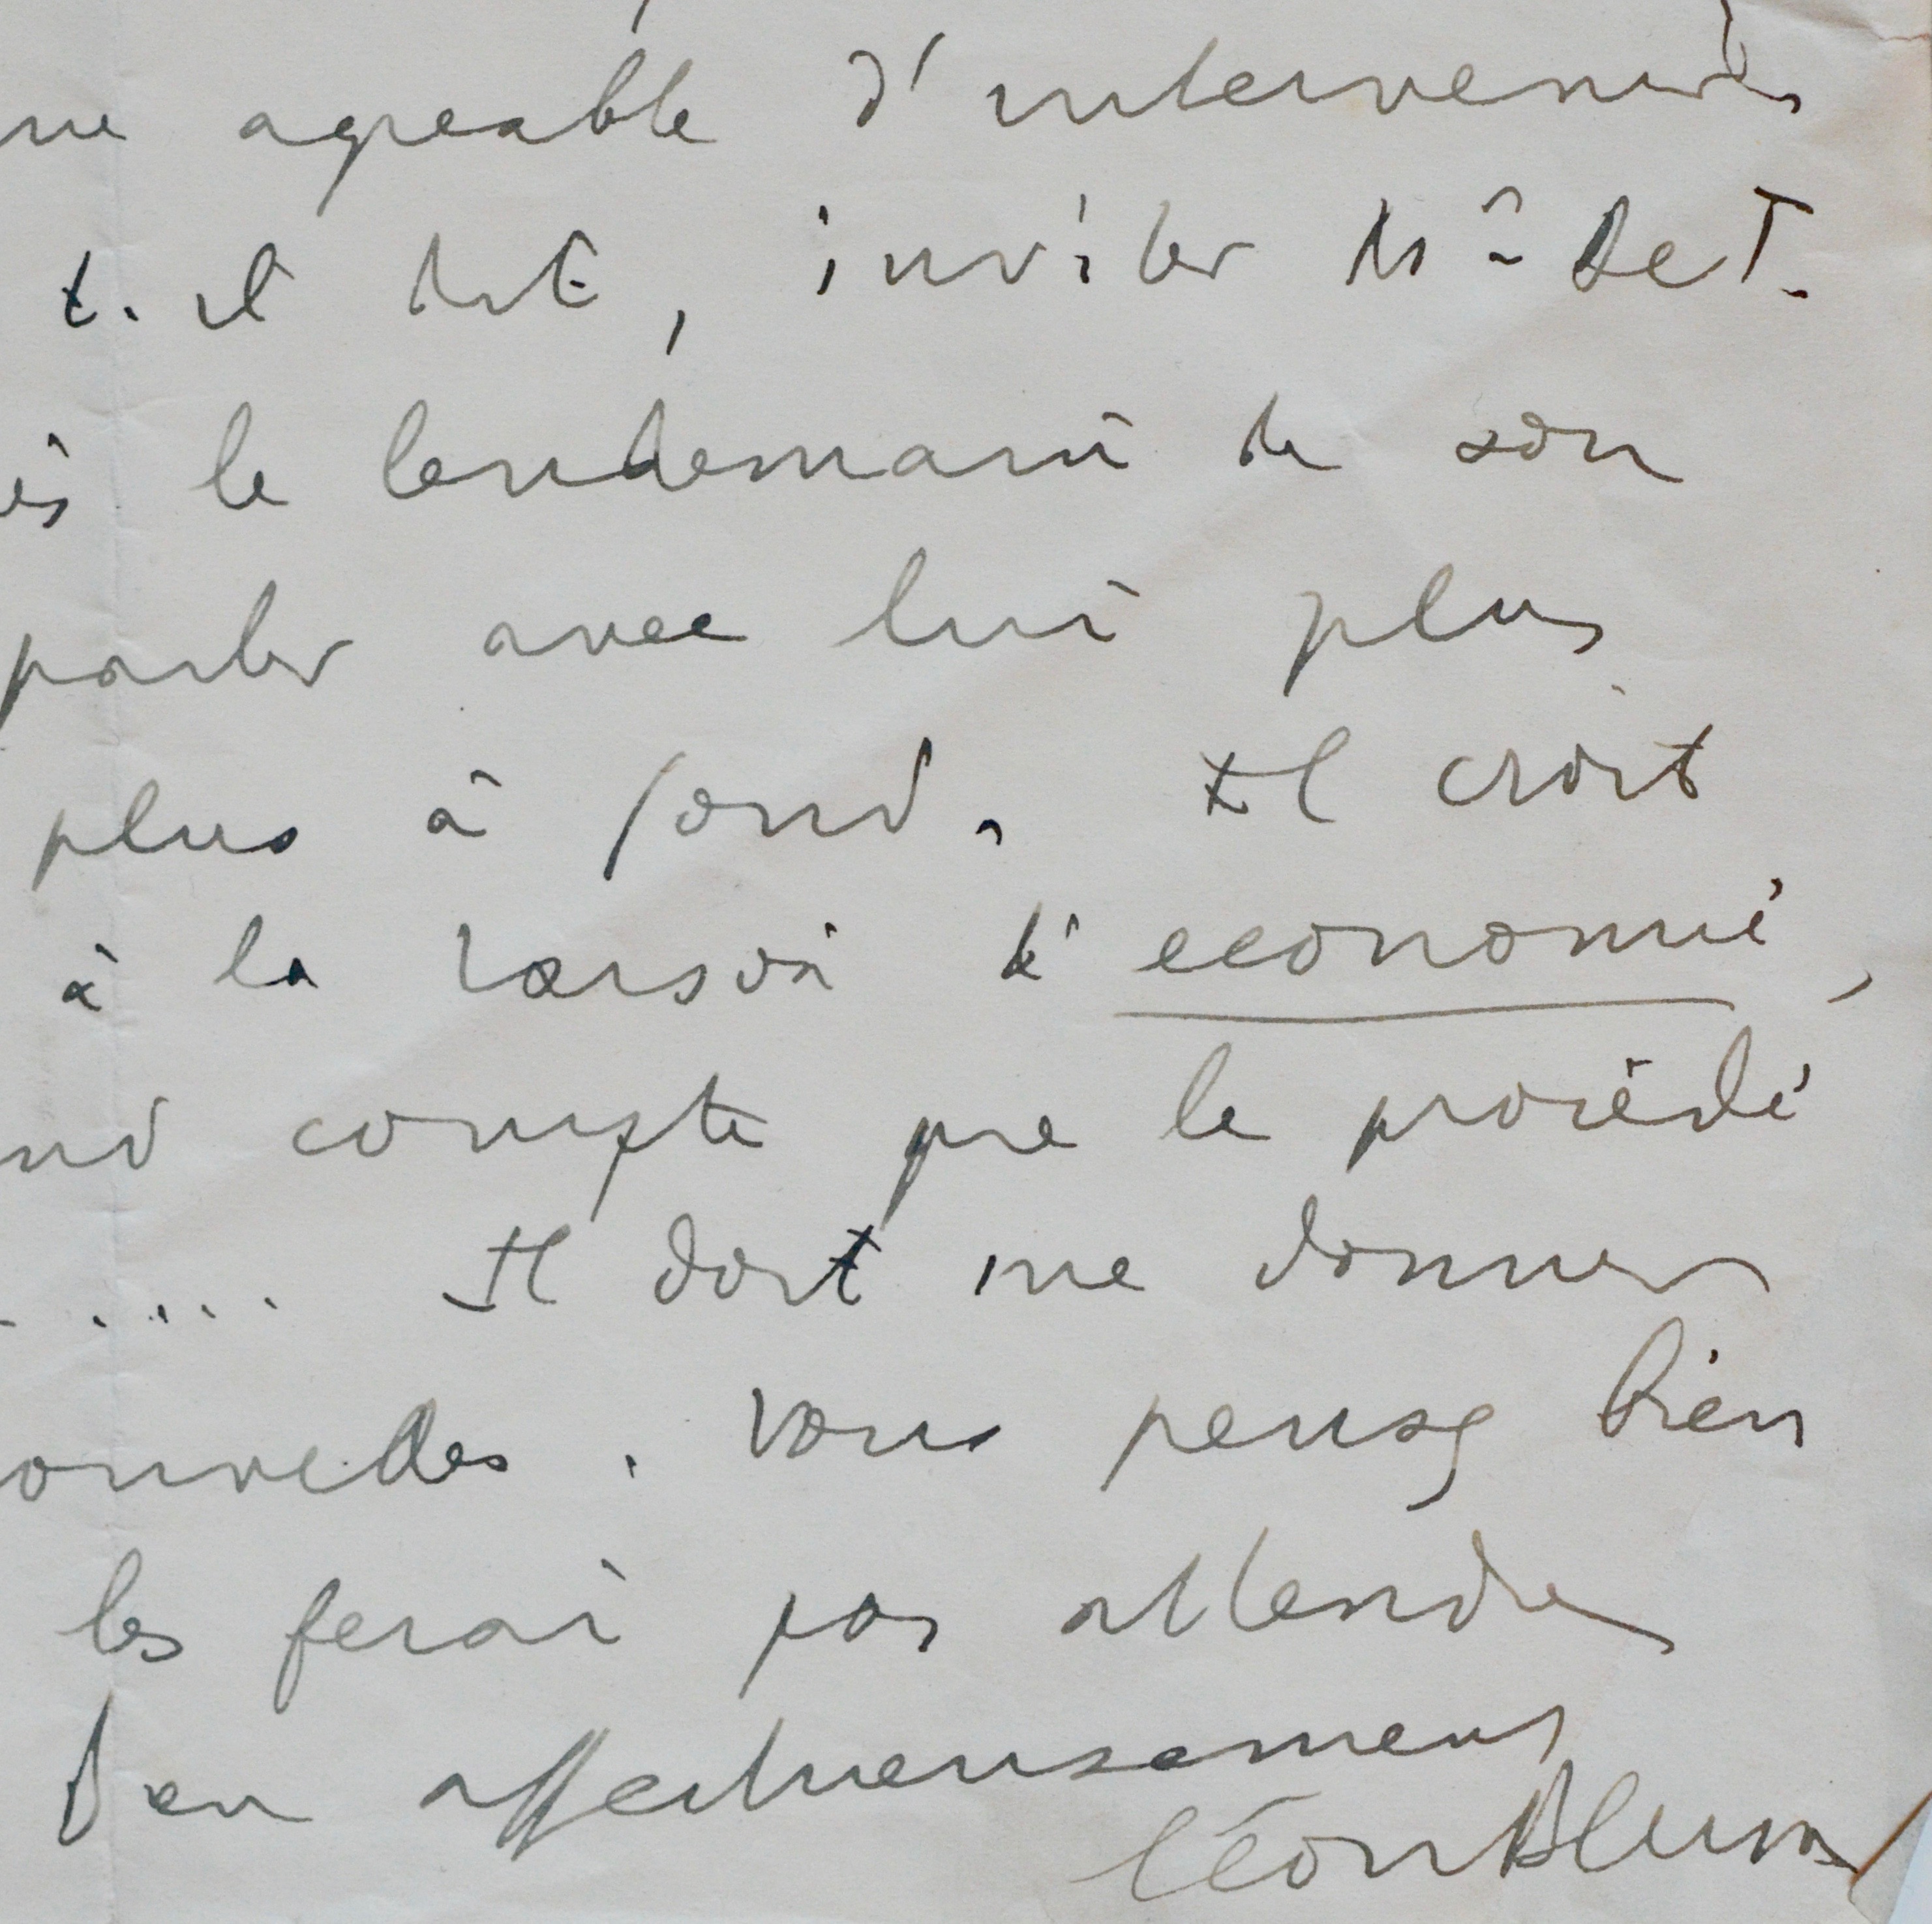 me agreable d'intervenir
t. il dit, inviter De T.
ès le lendemain de son
parler avec lui plus
plus à fond. Il croit
à la raison d'economie,
nd compte que le procédé
..... Il doit me donner
ouvelles. Vous pensez bien
les ferai pas attendre
Bien affectueusement
Léon Blum